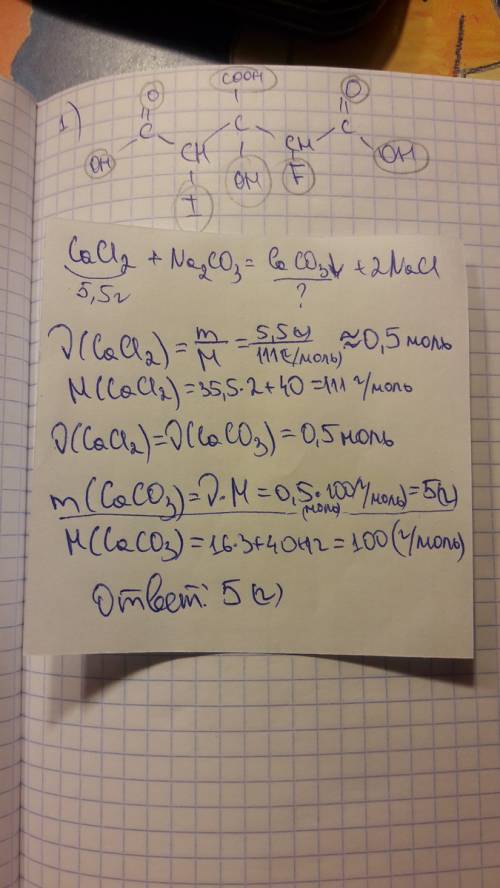 1)
COOH
O O
C C C
OH CH CH OH
I OH F
CaCl₂ + Na₂CO₃ = CaCO₃↓ + 2NaCl
5,5г ?
ν(CaCl₂) = m/M = 5,5(г)/111(г/моль) ≈ 0,5 моль
M(CaCl₂) = 35,5·2+40 = 111 г/моль
ν(CaCl₂) = ν(CaCO₃) = 0,5 моль
m(CaCO₃) = ν·M = 0,5(моль)·100(г/моль) = 5(г)
M(CaCO₃) = 16·3+40+12 = 100 (г/моль)
Ответ: 5 (г)